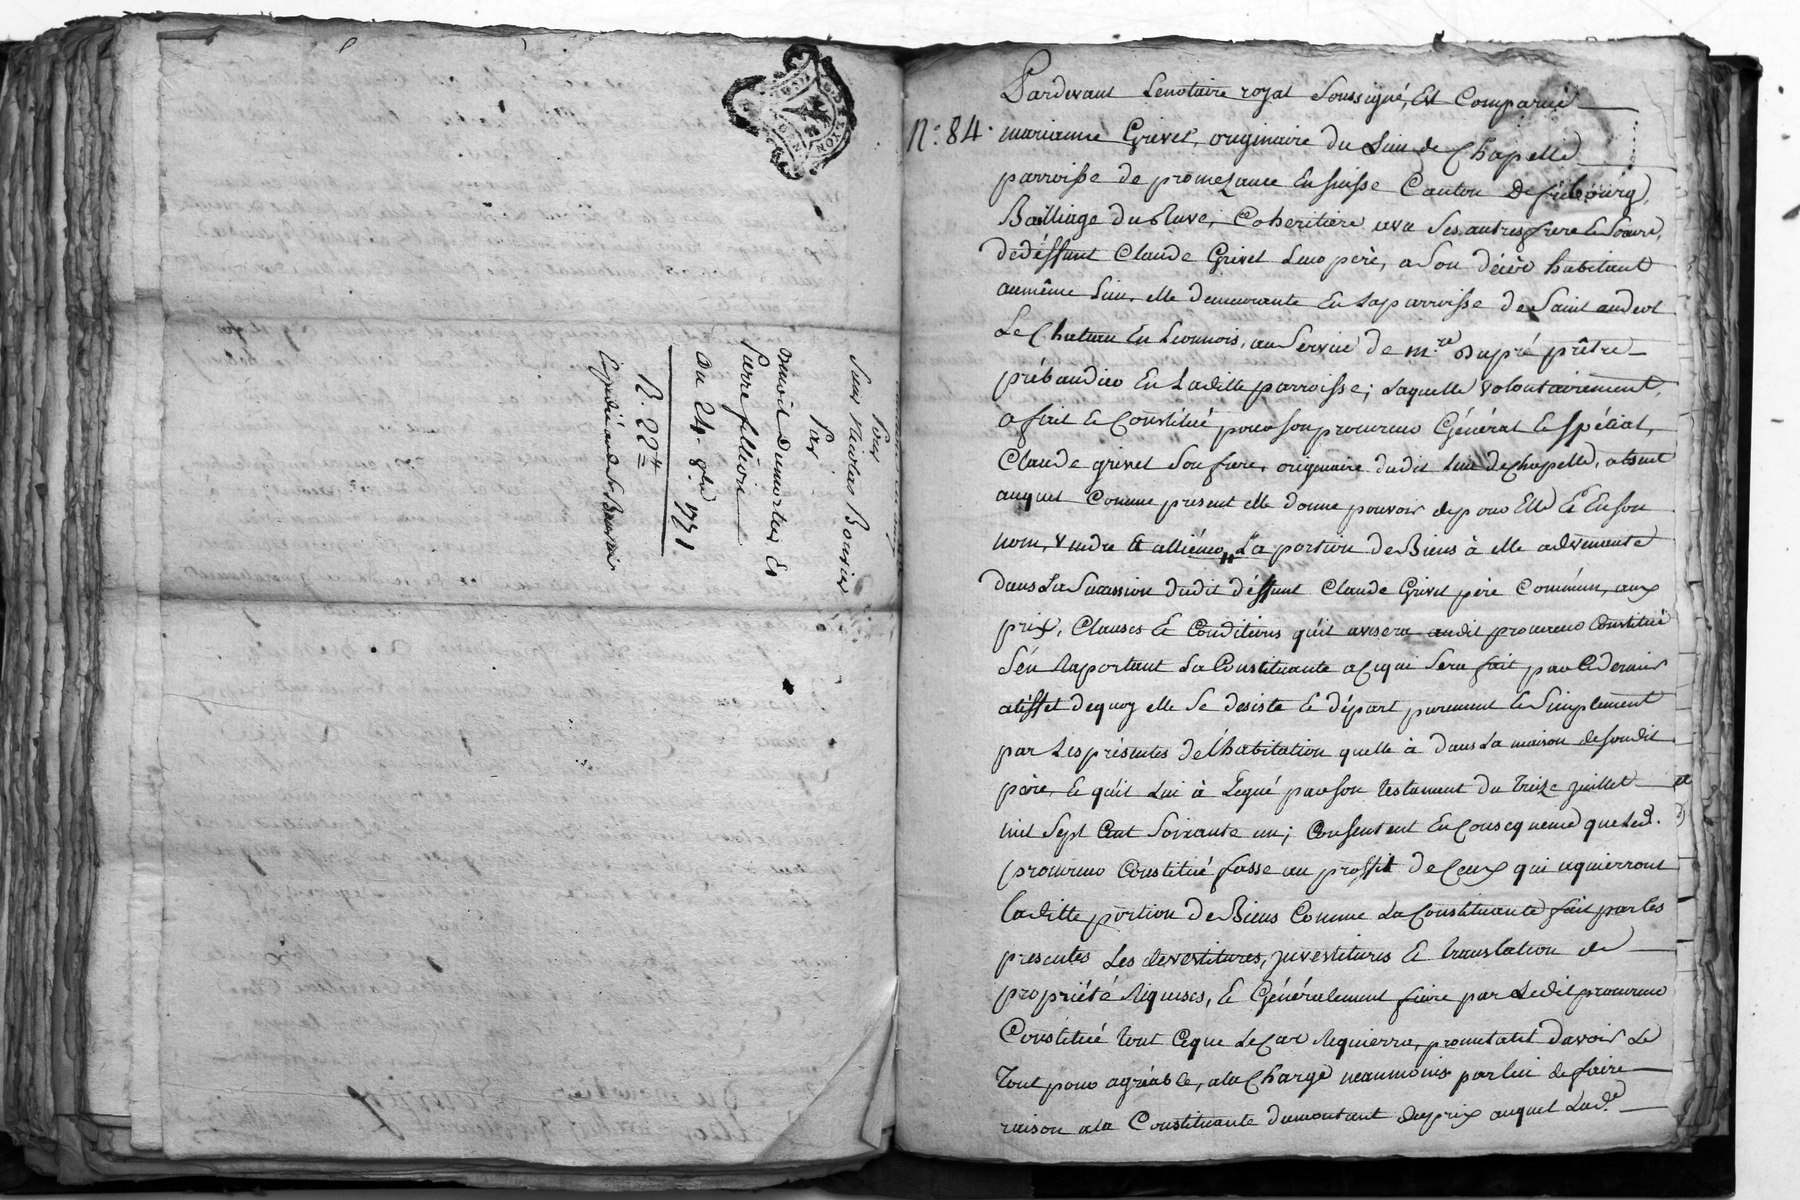 Pour
Sieur Nicolas Boursier
Par
benoit dumortier Et
Pierre filleux
Du 24. 8bre 1771.
N. 22
Pardevant Lenotaire royal Soussigné, Est Comparüe
N.º 84. marianne Grivet, originaire du Lieu de Chapelle
parroisse de promezance En suisse Canton de fribourg,
Bailliage du Ruve, Coheritiere avec Ses autres frere Et Soeurs,
dedéffunt Claude Grivet Leur père, a Son décéd habitant
aumême Lieu, elle demeurante En Laparroisse de Saint andeol
Le Chateau En Lionnois, au Service de m.re Dupré prêtre
prébandier En Laditte parroisse; Laquelle volontairement,
a fait Et Constitué pour son procureur Général Et Spécial,
Claude grivet Son frere, originaire dudit Lieu deChapelle, absent
auquel Comme present elle donne pouvoir de pour Elle Et En son
nom, vendre Et alliéner La portion deBiens à elle advenante
dans La Succession dudit déffunt Claude Grivet père Commun, aux
prix, Clauses Et Conditions qu'il avisera audit procureur Constitué
S'en Raportant La Constituante a Cequi Sera fait par Cedernier
atéffet dequoy elle Se desiste Et départ purement Et Simplement
par Les présentes del'habitation quelle à dans La maison desondit
père, Et qu'il Lui à Legué parson testament du treize juillet
mil Sept Cent Soixante un; Consentent En Consequence que Led.
procureur Constitué fasse au proffit de Ceux qui aquierront
laditte portion deBiens Comme La Constituante fait par les
presentes Les devestitures, investitures Et translation de
propriété Requises, Et Généralement faire par Ledit procureur
Constitué tout Ceque LeCas Requierra, prometant d'avoir Le
tout pour agréable, ala Charge neanmoins par lui de faire
raison ala Constituante dumontant duprix auquel Lad.e